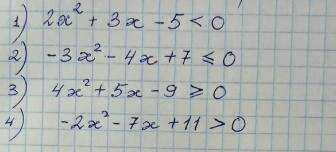 1) 2x² + 3x - 5 < 0
2) -3x² - 4x + 7 ≤ 0
3) 4x² + 5x - 9 ≥ 0
4) -2x² - 7x + 11 > 0